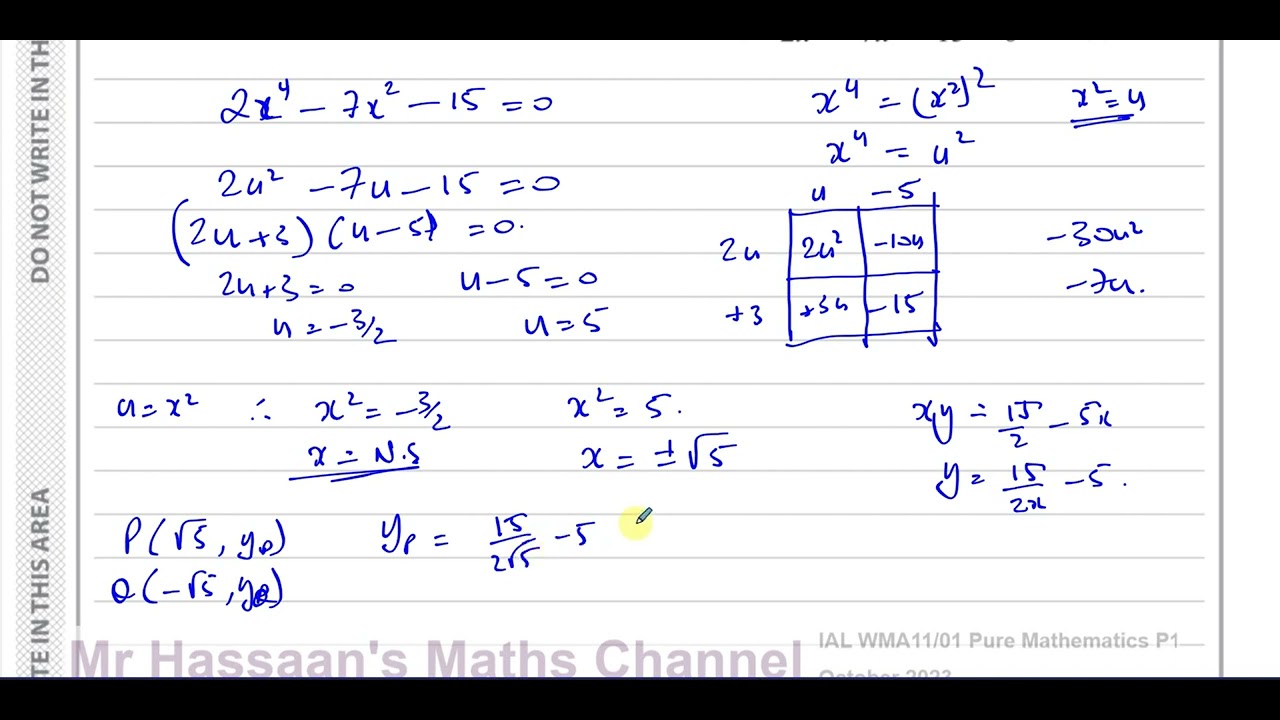 DO NOT WRITE IN TH
TE IN THIS AREA
2x⁴ - 7x² - 15 = 0
x⁴ = (x²)²
x² = u
x⁴ = u²
2u² - 7u - 15 = 0
(2u+3)(u-5) = 0.
2u+3 = 0
u-5=0
u = -3/2
u=5
u -5
2u 2u² -10u
+3 +3u -15
-30u²
-7u.
u=x² ∴ x² = -3/2
x² = 5.
x = N.S
x = ±√5
xy = 15/2 - 5x
y = 15/2x - 5.
P(√5, yP)
yP = 15/2√5 - 5
Q(-√5, yQ)
Mr Hassaan's Maths Channel
IAL WMA11/01 Pure Mathematics P1
October 2023